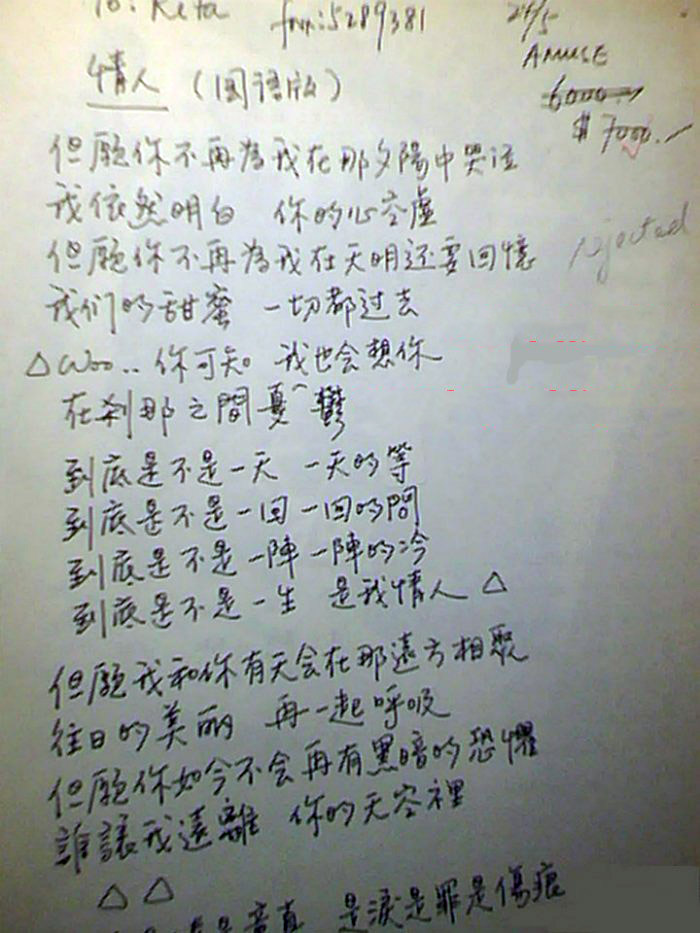 To: Keta
fax: 5289381
24/5
AMUSE
6000.
$7000.
情人 (国语版)
但願你不再為我在那夕陽中哭泣
我依然明白 你的心空虛
但願你不再為我在天明還要回憶
rejected
我们的甜蜜 一切都过去
△ Woo.. 你可知 我也会想你
在刹那之間憂鬱
到底是不是一天 一天的等
到底是不是一回 一回的問
到底是不是一陣 一陣的冷
到底是不是一生 是我情人 △
但願我和你有天会在那遠方相聚
往日的美丽 再一起呼吸
但願你如今不会再有黑暗的恐懼
誰讓我遠離 你的天空裡
△ △
是淚是罪是傷痕